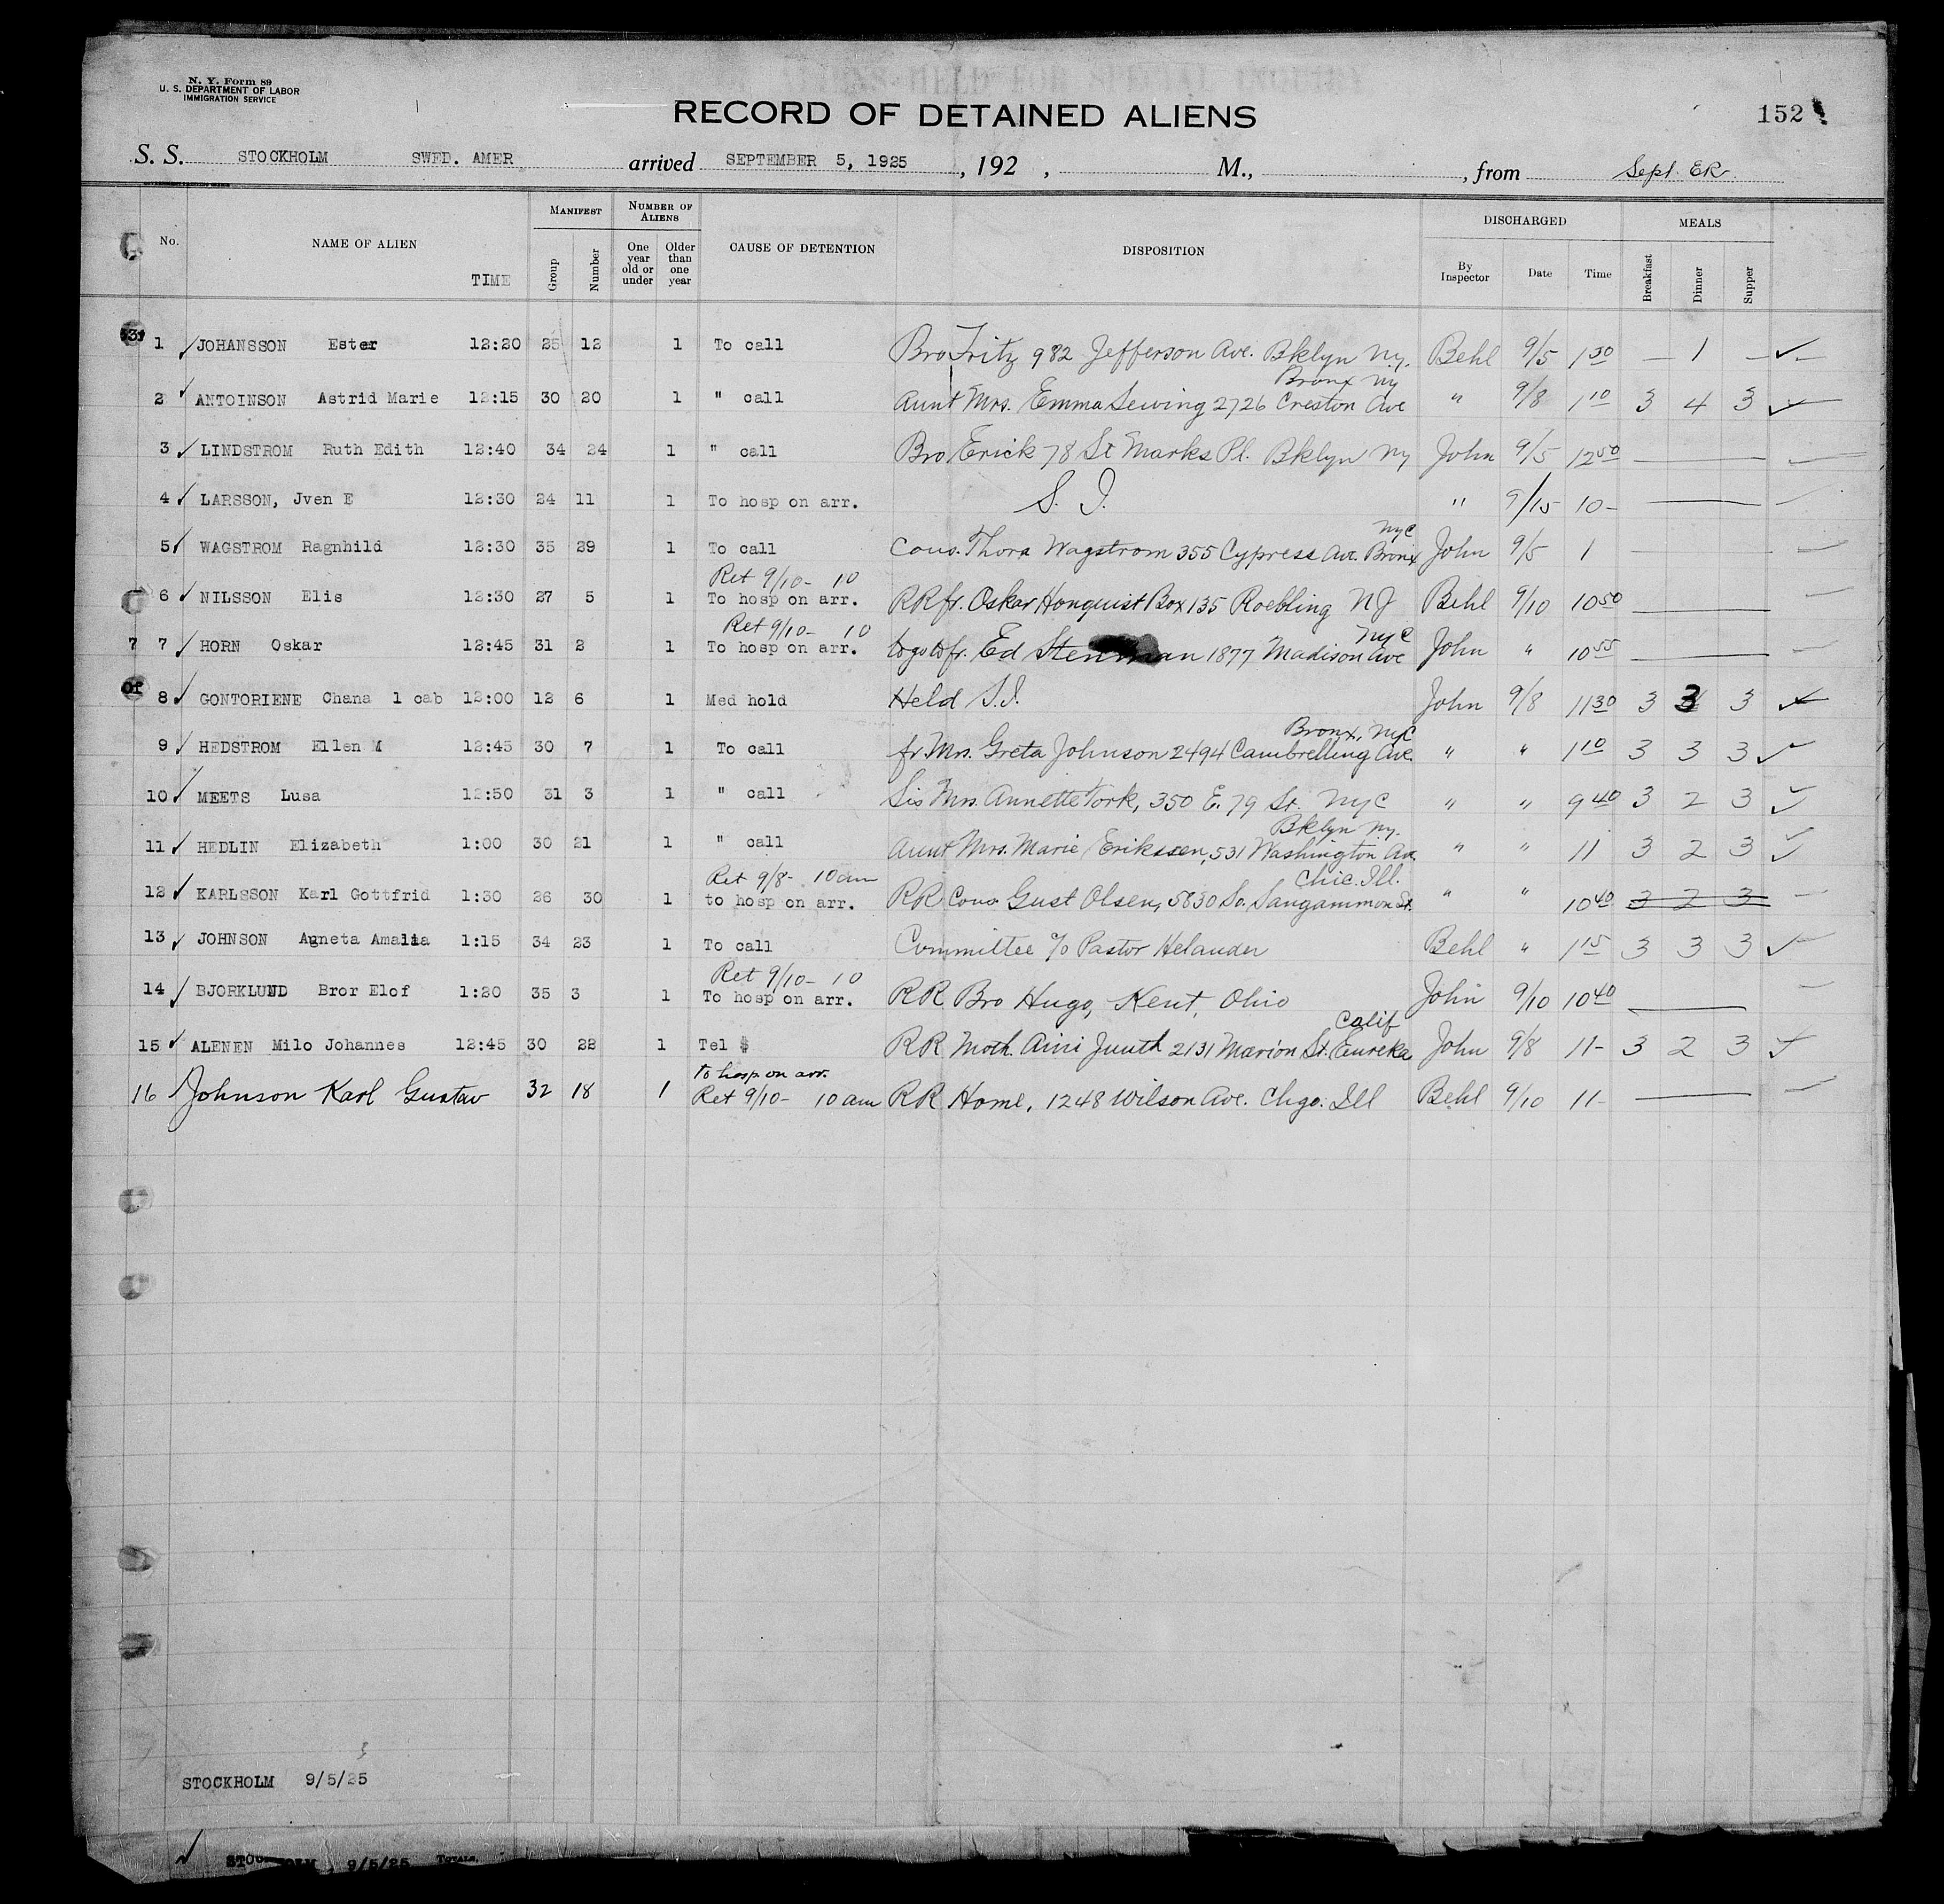 N. Y. Form 89
U. S. DEPARTMENT OF LABOR
IMMIGRATION SERVICE
RECORD OF DETAINED ALIENS
152
S. S. STOCKHOLM SWED. AMER arrived SEPTEMBER 5, 1925, 192 , M., , from Sept. ER
No. NAME OF ALIEN TIME MANIFEST Group Number NUMBER OF ALIENS One year old or under Older than one year CAUSE OF DETENTION DISPOSITION DISCHARGED By Inspector Date Time MEALS Breakfast Dinner Supper
1 JOHANSSON Ester 12:20 25 12 1 To call Bro Fritz 982 Jefferson Ave. Bklyn Ny. Behl 9/5 1 30 — 1 —
Bronx Ny
2 ANTOINSON Astrid Marie 12:15 30 20 1 " call Aunt Mrs. Emma Sewing 2726 Creston Ave " 9/8 1 10 3 4 3
3 LINDSTROM Ruth Edith 12:40 34 24 1 " call Bro Erick 78 St Marks Pl. Bklyn Ny John 9/5 12 50
4 LARSSON, Jven E 12:30 24 11 1 To hosp on arr. S. I. " 9/15 10-
NyC
5 WAGSTROM Ragnhild 12:30 35 29 1 To call Cous. Thora Wagstrom 355 Cypress Ave. Bronx John 9/5 1
Ret 9/10- 10
6 NILSSON Elis 12:30 27 5 1 To hosp on arr. RR fr. Oskar Honquist Box 135 Roebling NJ Behl 9/10 10 50
Ret 9/10- 10 NyC
7 7 HORN Oskar 12:45 31 2 1 To hosp on arr. to go to fr. Ed Stenman 1877 Madison Ave John " 10 55
Of 8 GONTORIENE Chana 1 cab 12:00 12 6 1 Med hold Held S.I. John 9/8 11 30 3 3 3
Bronx, NyC
9 HEDSTROM Ellen M 12:45 30 7 1 To call fr. Mrs. Greta Johnson 2494 Cambrelling Ave. " " 1 10 3 3 3
10 MEETS Lusa 12:50 31 3 1 " call Sis Mrs. Annette Tork, 350 E. 79 St. NyC " " 9 40 3 2 3
Bklyn Ny.
11 HEDLIN Elizabeth 1:00 30 21 1 " call Aunt Mrs. Marie Erikssen, 531 Washington Av. " " 11 3 2 3
Ret 9/8- 10 am Chic. Ill.
12 KARLSSON Karl Gottfrid 1:30 26 30 1 to hosp on arr. RR Cous. Gust Olsen, 5830 So. Sangammon St. " " 10 40 3 2 3
13 JOHNSON Agneta Amalia 1:15 34 23 1 To call Committee c/o Pastor Helander Behl " 1 15 3 3 3
Ret 9/10- 10
14 BJORKLUND Bror Elof 1:20 35 3 1 To hosp on arr. RR Bro Hugo, Kent, Ohio John 9/10 10 40
Calif
15 ALENEN Milo Johannes 12:45 30 22 1 Tel $ RR Moth. Aini Juuth 2131 Marion St. Eureka John 9/8 11- 3 2 3
To hosp on arr.
16 Johnson Karl Gustav 32 18 1 Ret 9/10- 10 am RR Home, 1248 Wilson Ave. Chgo. Ill Behl 9/10 11-
STOCKHOLM 9/5/25
STOCKHOLM 9/5/25 TOTALS.